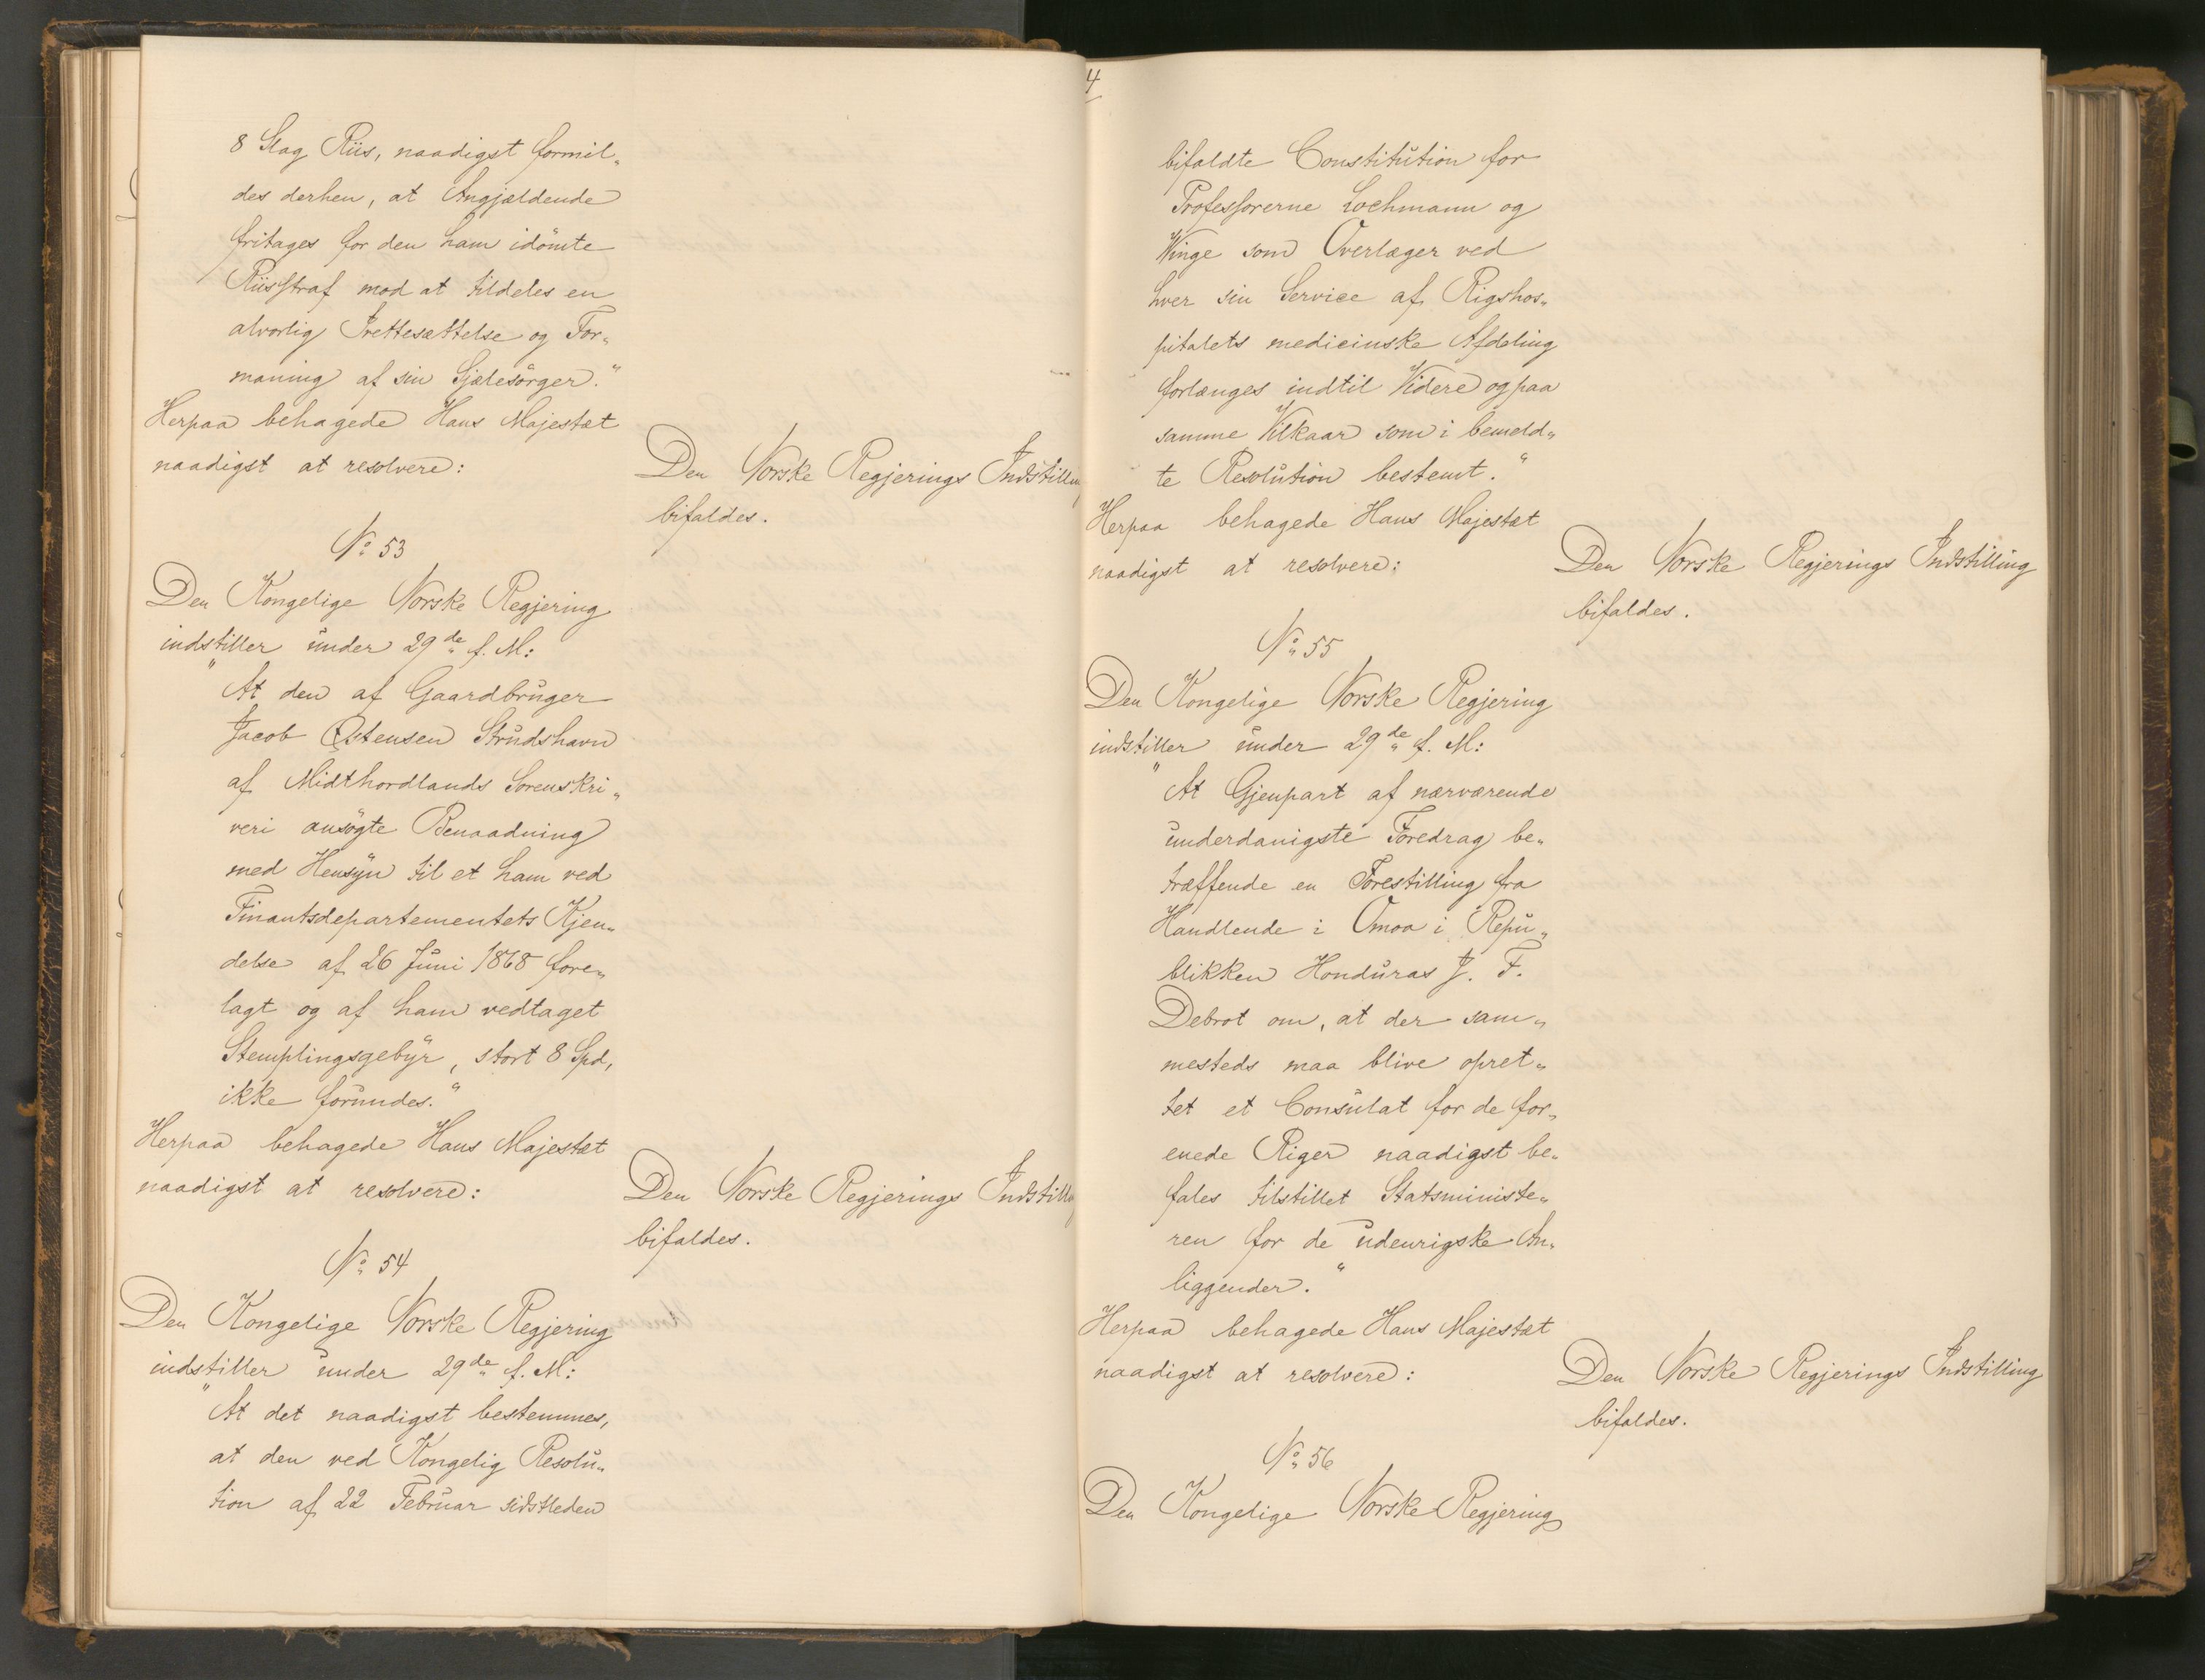 8 Slag Riis, naadigst formil„
des derhen, at Angjældende
fritages for den ham idömte
Riisstraf mod at tildeles en
alvorlig Irettesættelse og For„
maning af sin Sjælesörger."
Herpaa behagede Hans Majestæt
naadigst at resolvere:
Den Norske Regjerings Indstilling
bifaldes.
No 53
Den Kongelige Norske Regjering
indstiller under 29de f. M:
"At den af Gaardbruger
Jacob Østensen Strudshavn
af Midthordlands Sorenskri„
veri ansögte Benaadning
med Hensyn til et ham ved
Finantsdepartementets Kjen„
delse af 26 Juni 1868 fore„
lagt og af ham vedtaget
Stemplingsgebyr, stort 8 Spd,
ikke forundes."
Herpaa behagede Hans Majestæt
naadigst at resolvere:
Den Norske Regjerings Indstilling
bifaldes.
No 54
Den Kongelige Norske Regjering
indstiller under 29de f. M:
"At det naadigst bestemmes,
at den ved Kongelig Resolu„
tion af 22 Februar sidstleden
4
bifaldte Constitution for
Professorerne Lochmann og
Winge som Overlæger ved
hver sin Service af Rigshos„
pitalets medicinske Afdeling
forlænges indtil Videre og paa
samme Vilkaar som i bemeld„
te Resolution bestemt."
Herpaa behagede Hans Majestæt
naadigst at resolvere:
Den Norske Regjerings Indstilling
bifaldes.
No 55
Den Kongelige Norske Regjering
indstiller under 29de f. M:
"At Gjenpart af nærværende
underdanigste Foredrag be„
træffende en Forestilling fra
Handlende i Omoa i Repu„
blikken Honduras J. F.
Debrot om, at der sam„
mesteds maa blive opret„
tet et Consulat for de for„
enede Riger naadigst be„
fales tilstillet Statsministe„
ren for de udenrigske An„
liggender."
Herpaa behagede Hans Majestæt
naadigst at resolvere:
Den Norske Regjerings Indstilling
bifaldes.
No 56
Den Kongelige Norske Regjering